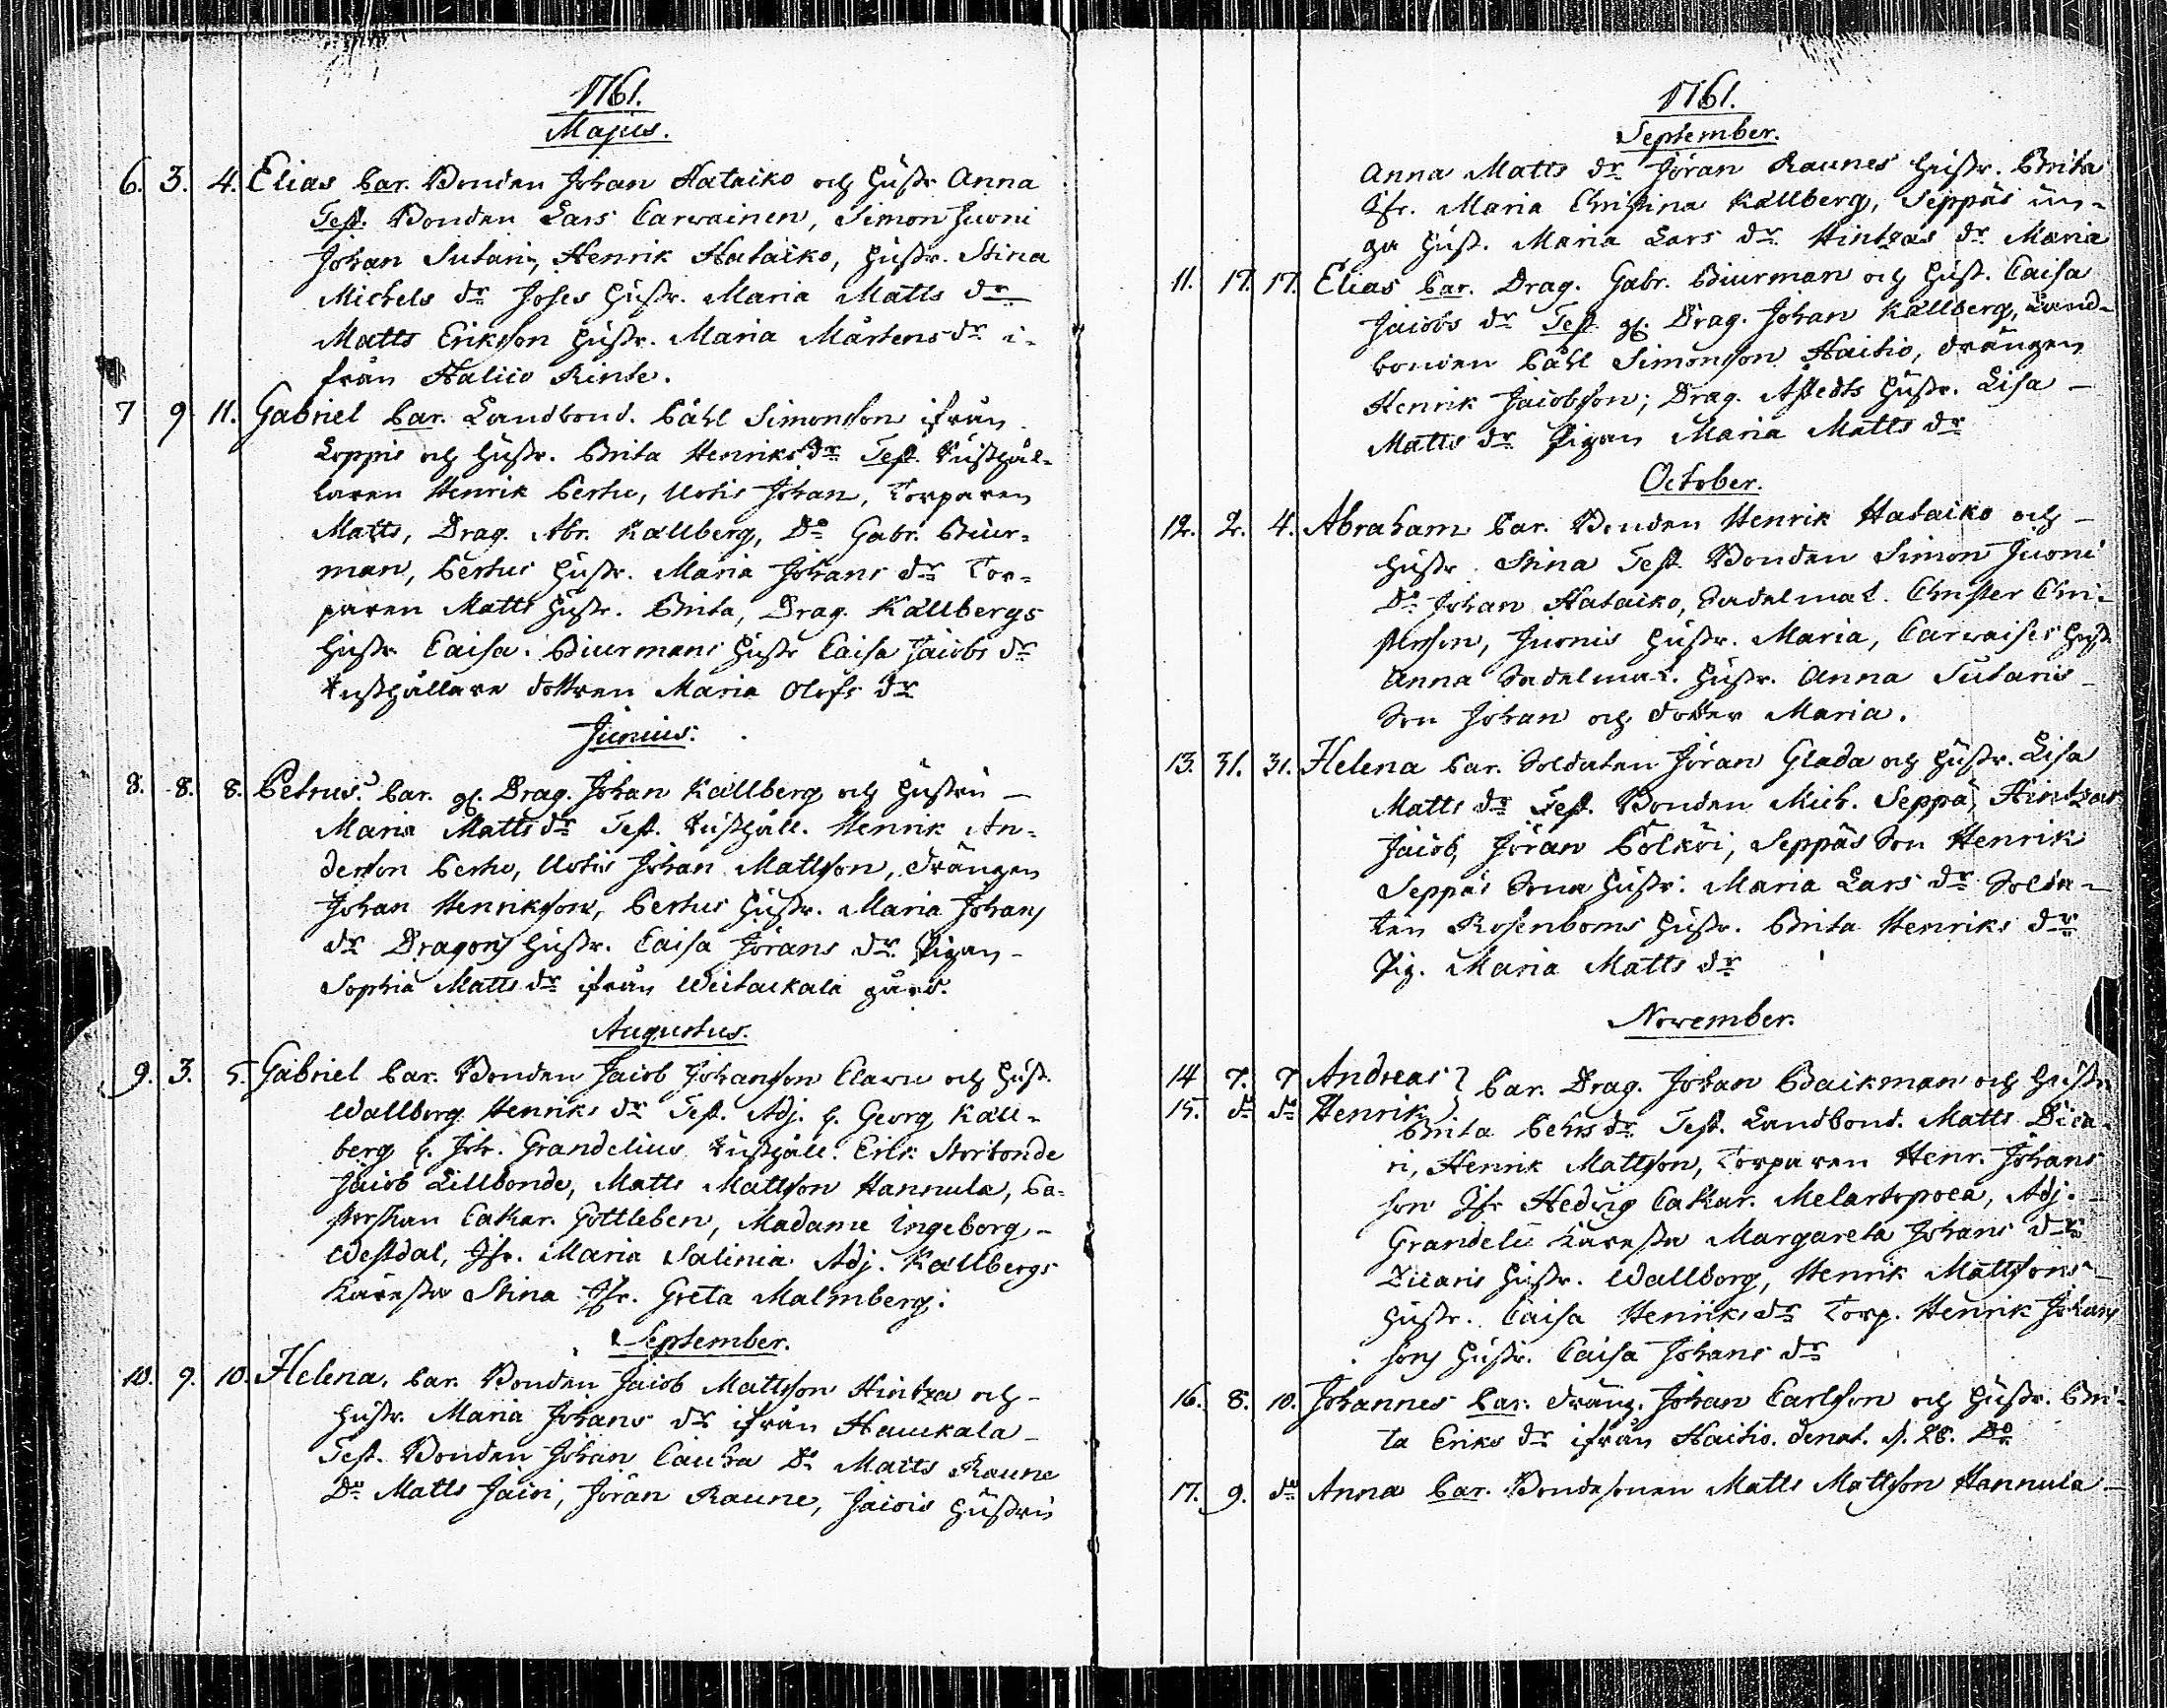 1761.
Majus.
6. 3. 4. Elias Par. Bonden Johan Hataiko och hustr. Anna
Test. Bonden Lars Carvainen, Simon Juoni
Johan Sutari, Henrik Hataiko, hustr. Stina
Michels dr Joses hustr. Maria Matts dr
Matts Erikson hustr. Maria Mårtens dr i-
från Haliio Rinte.
7 9 11. Gabriel Par. Landbond. Påhl Simonsson ifrån
Loppis och hustr. Brita Henriks dr Test. Rusthål-
laren Henrik Perhu, Uotis Johan, Torparen
Matts, Drag. Abr. Kållberg, Do Gabr. Biur-
man, Perhus hustr. Maria Johans dr Tor-
paren Matts hustr. Brita, Drag. Kållbergs
hustr. Caisa. Biurmans hustr Caisa Jacobs dr
Rusthållare dottren Maria Olofs dr
Junius.
8. 8. 8. Petrus. Par. gl. Drag. Johan Kållberg och hustru
Maria Matts dr Test. Rusthåll. Henrik An-
derson Perhu, Uotis Johan Mattson, drängen
Johan Henrikson, Perhus hustr. Maria Johans
dr Dragons hustr. Caisa Jörans dr. Pigan
Sophia Matts dr ifrån Weitaikala gård.
Augustus.
9. 3. 5. Gabriel Par. Bonden Jacob Johanson Clavu och hust.
Wallborg Henriks dr Test. Adj. h. Georg Käll-
berg h. Joh. Grandelius Rusthåll. Erik Storbonde
Jacob Lillbonde, Matts Mattson Hannula, Pa-
storskan Cathar. Gottleben, Madame Ingeborg
Westdal, Jfr. Maria Salinia Adj. Kållbergs
Käresta Stina Jfr. Greta Malmberg.
September.
10. 9. 10. Helena. Par. Bonden Jacob Mattsson Hintza och
hustr. Maria Johans dr ifrån Haukala
Test. Bonden Johan Cauha Do Matts Raune
Do Matts Jaioi, Jöran Raune, Jaiois hustru
1761.
September.
Anna Matts dr Jöran Raunes hustr. Brita
Jfr. Maria Christina Kållberg, Seppäs un-
ga hust. Maria Lars dr Hintzas dr Maria
11. 17. 17. Elias Par. Drag. Gabr. Biurman och hust. Caisa
Jacobs dr Test. gl. Drag. Johan Kållberg, Land-
bonden Påhl Simonson Haitio, drängen
Henrik Jacobson; Drag. Astedts hustr. Lisa
Matts dr Pigan Maria Matts dr
October.
12. 2. 4. Abraham Par. Bonden Henrik Hataiko och
hustr. Stina Test. Bonden Simon Juoni
Do Johan Hataiko, Sadelmak. Christer Chri-
sterson, Juonis hustr. Maria, Carvaises hustr
Anna Sadelmak. hustr. Anna Sutaris
Son Johan och dotter Maria.
13. 31. 31. Helena Par. Soldaten Jöran Glada och hustr. Lisa
Matts dr Test. Bonden Mich. Seppä, Hintzas
Jacob, Jöran Pölköi, Seppäs Son Henrik
Seppäs Sona hustr. Maria Lars dr Solda-
ten Rosenboms hustr. Brita Henriks dr
Pig. Maria Matts dr
November.
14 7. 7 Andreas } Par. Drag. Johan Backman och hustr
15. do do Henrik }
Brita Pehrs dr Test. Landbond. Matts Dica-
ri, Henrik Mattson, Torparen Henr. Johans
son Jfr Hedvig Cathar. Melartopoea, Adj.
Grandelii Käresta Margareta Johans dr
Dicaris hustr. Wallborg, Henrik Mattsons
hustr. Caisa Henriks dr Torp. Henrik Johans
sons hustr. Caisa Johans dr
16. 8. 10. Johannes Par. dräng. Johan Carlson och hustr. Bri-
ta Eriks dr ifrån Haitio. denat. d. 28. Do
17. 9. do Anna Par. Bondesonen Matts Mattson Hannula